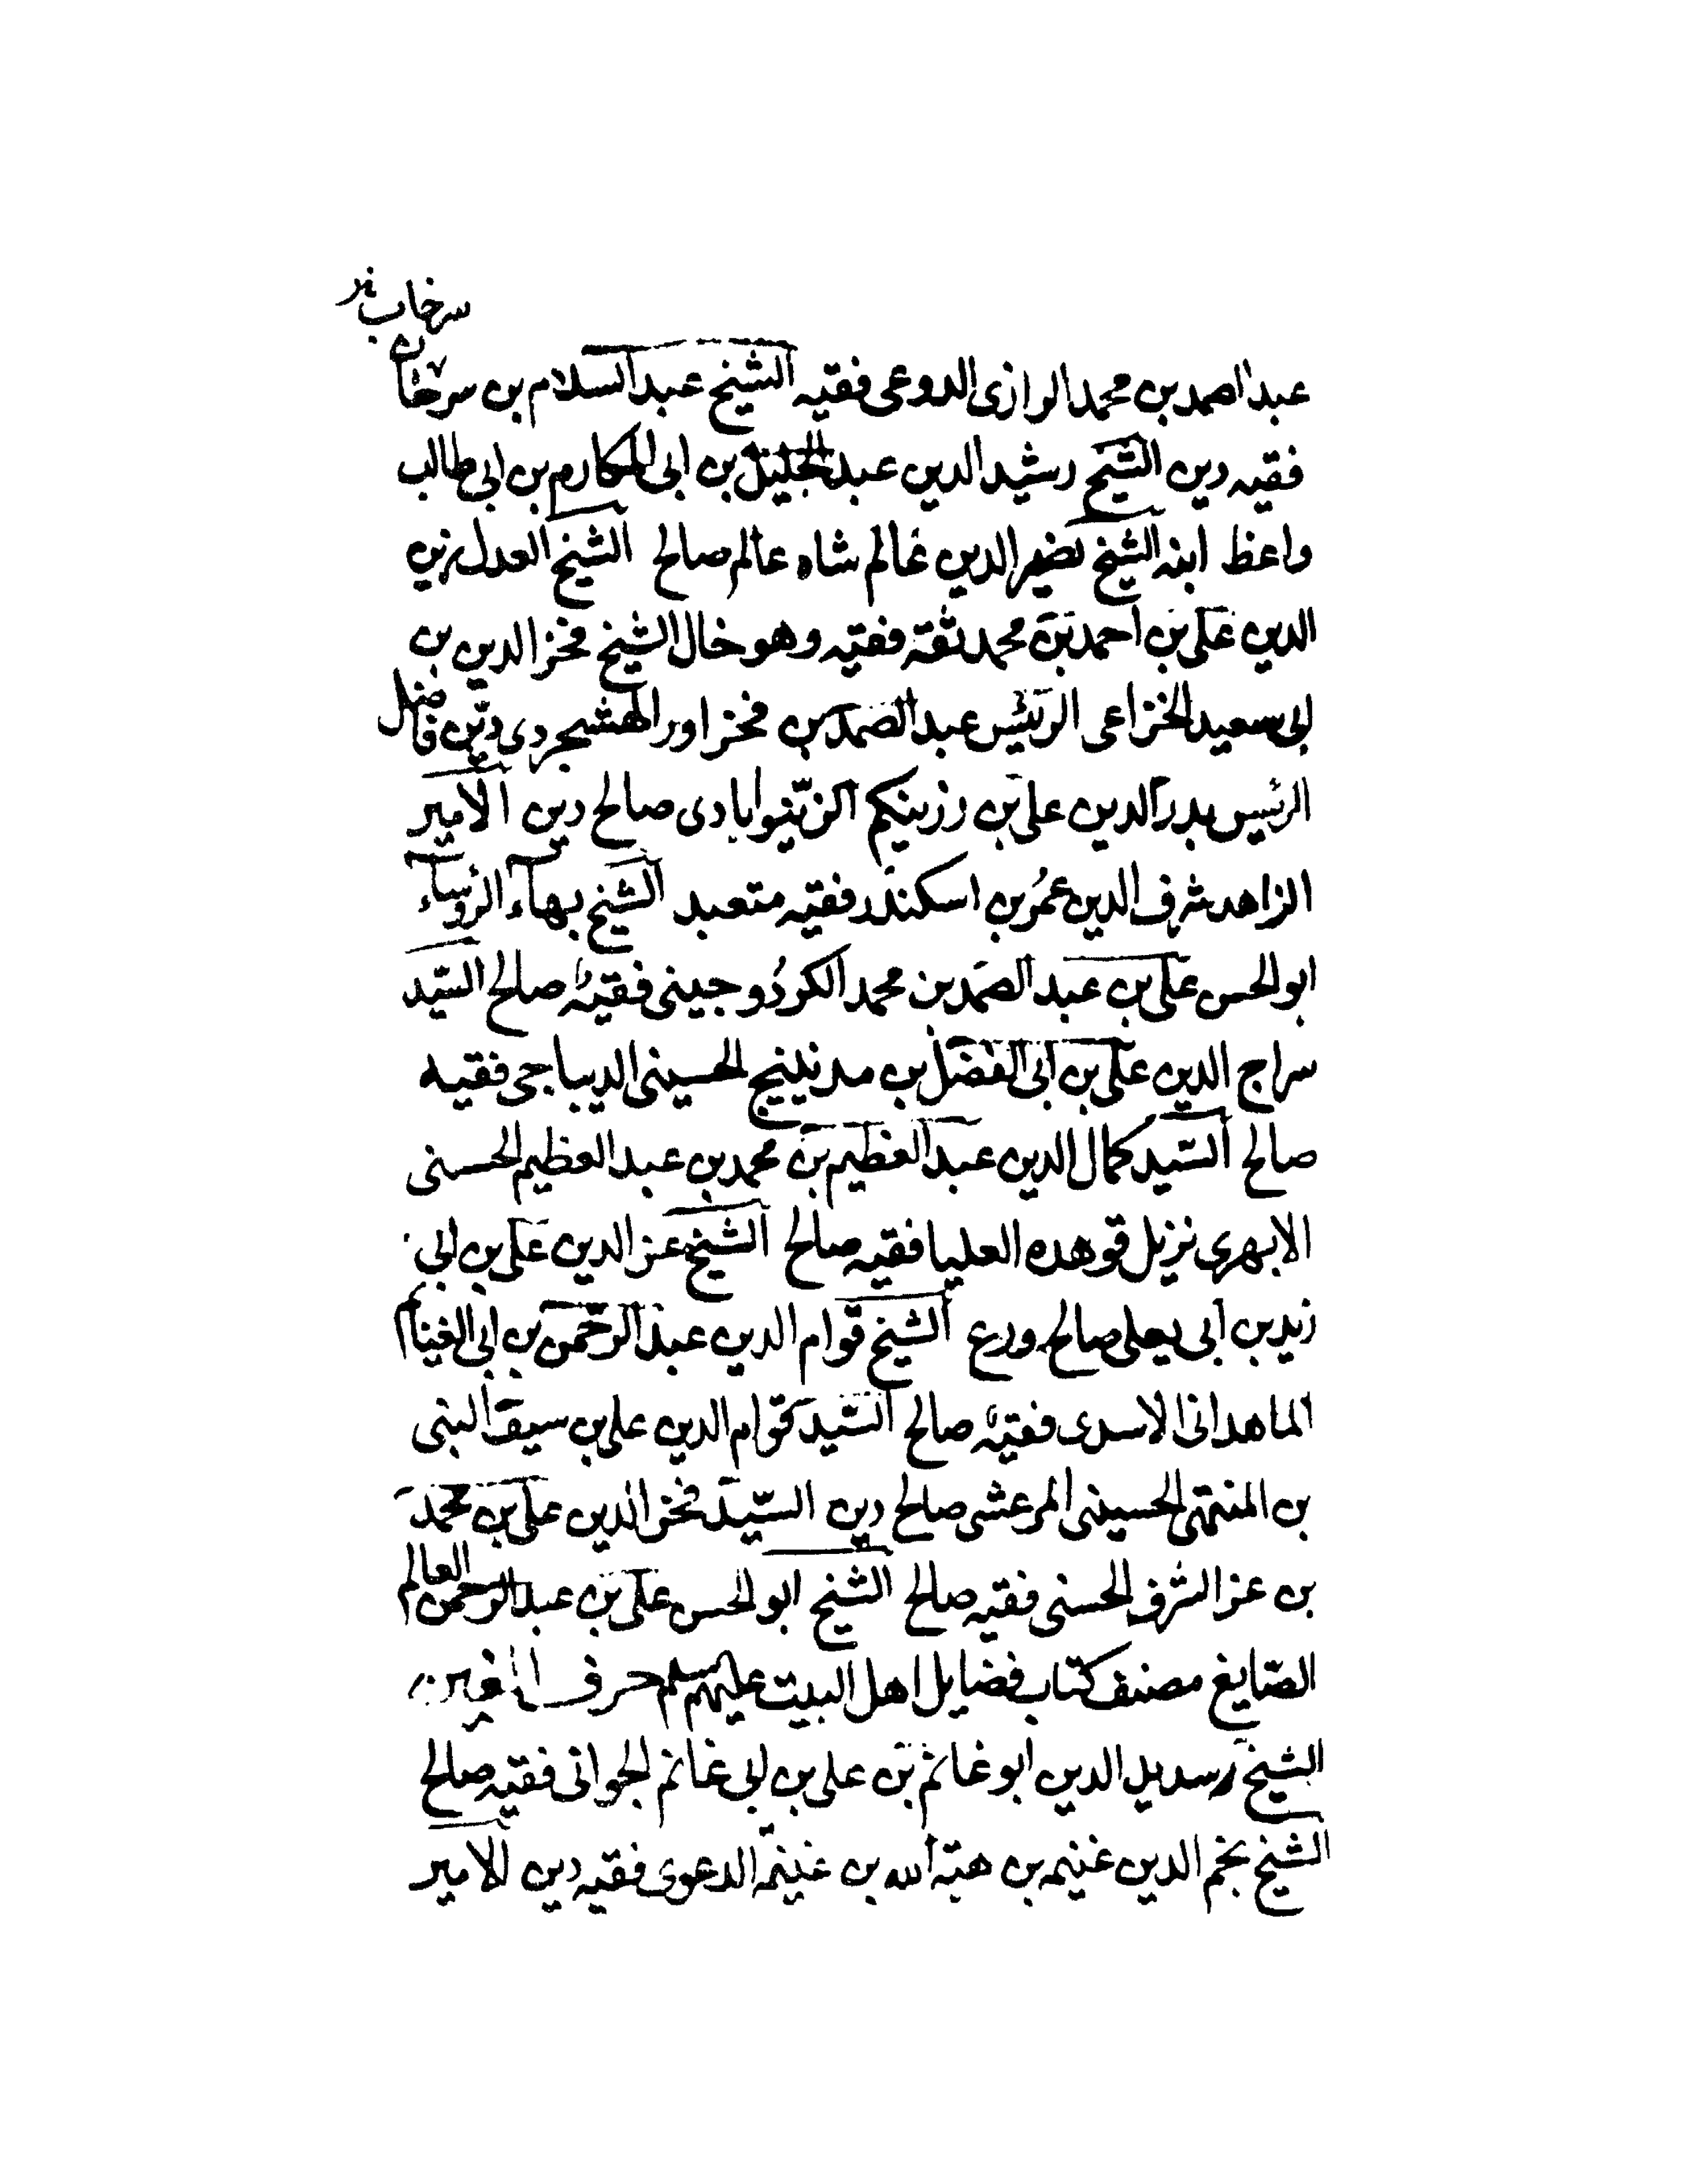 سرخاب
عبد الصمد بن محمد الرازى الدوعى فقيه الشيخ عبد السلام بن سرخاب
فقيه دين الشيخ رشيد الدين عبد الجليل بن ابى المكارم بن ابى طالب
واعظ ابنه الشيخ نصير الدين عالم شاه عالم صالح الشيخ العدل زين
الدين على بن احمد بن محمد ثقة فقيه وهو خال الشيخ فخر الدين بن
ابى سعيد الخزاعى الرئيس عبد الصمد بن فخراور الهشجردى دين فاضل
الرئيس بدر الدين على بن رزينكم الزينوابادى صالح دين الامير
الزاهد شرف الدين عمر بن اسكندر فقيه متعبد الشيخ بهاء الرؤساء
ابو الحسن على بن عبد الصمد بن محمد الكردوجينى فقيه صالح السيد
سراج الدين على بن ابى الفضل بن الحسينى الديباجى فقيه
صالح السيد كمال الدين عبد العظيم بن محمد بن عبد العظيم الحسنى
الابهرى نزيل قوهده العليا فقيه صالح الشيخ عز الدين على بن ابى
زيد بن ابى يعلى صالح ورع الشيخ قوام الدين عبد الرحمن بن ابى الغنايم
الماهدانى الاسدى فقيه صالح السيد قوام الدين على بن سيف النبى
بن المنتهى الحسينى المرعشى صالح دين السيد فخر الدين على بن محمد
بن عز الشرف الحسنى فقيه صالح الشيخ ابو الحسن على بن عبد الرحمن العالم
الصايغ مصنف كتاب فضايل اهل البيت عليهم سلم حرف الغين
الشيخ الدين ابو غانم بن على بن ابى غانم الجوانى فقيه صالح
الشيخ نجم الدين غنيمه بن هبة الله بن غنيمة الدعوى فقيه دين الامير